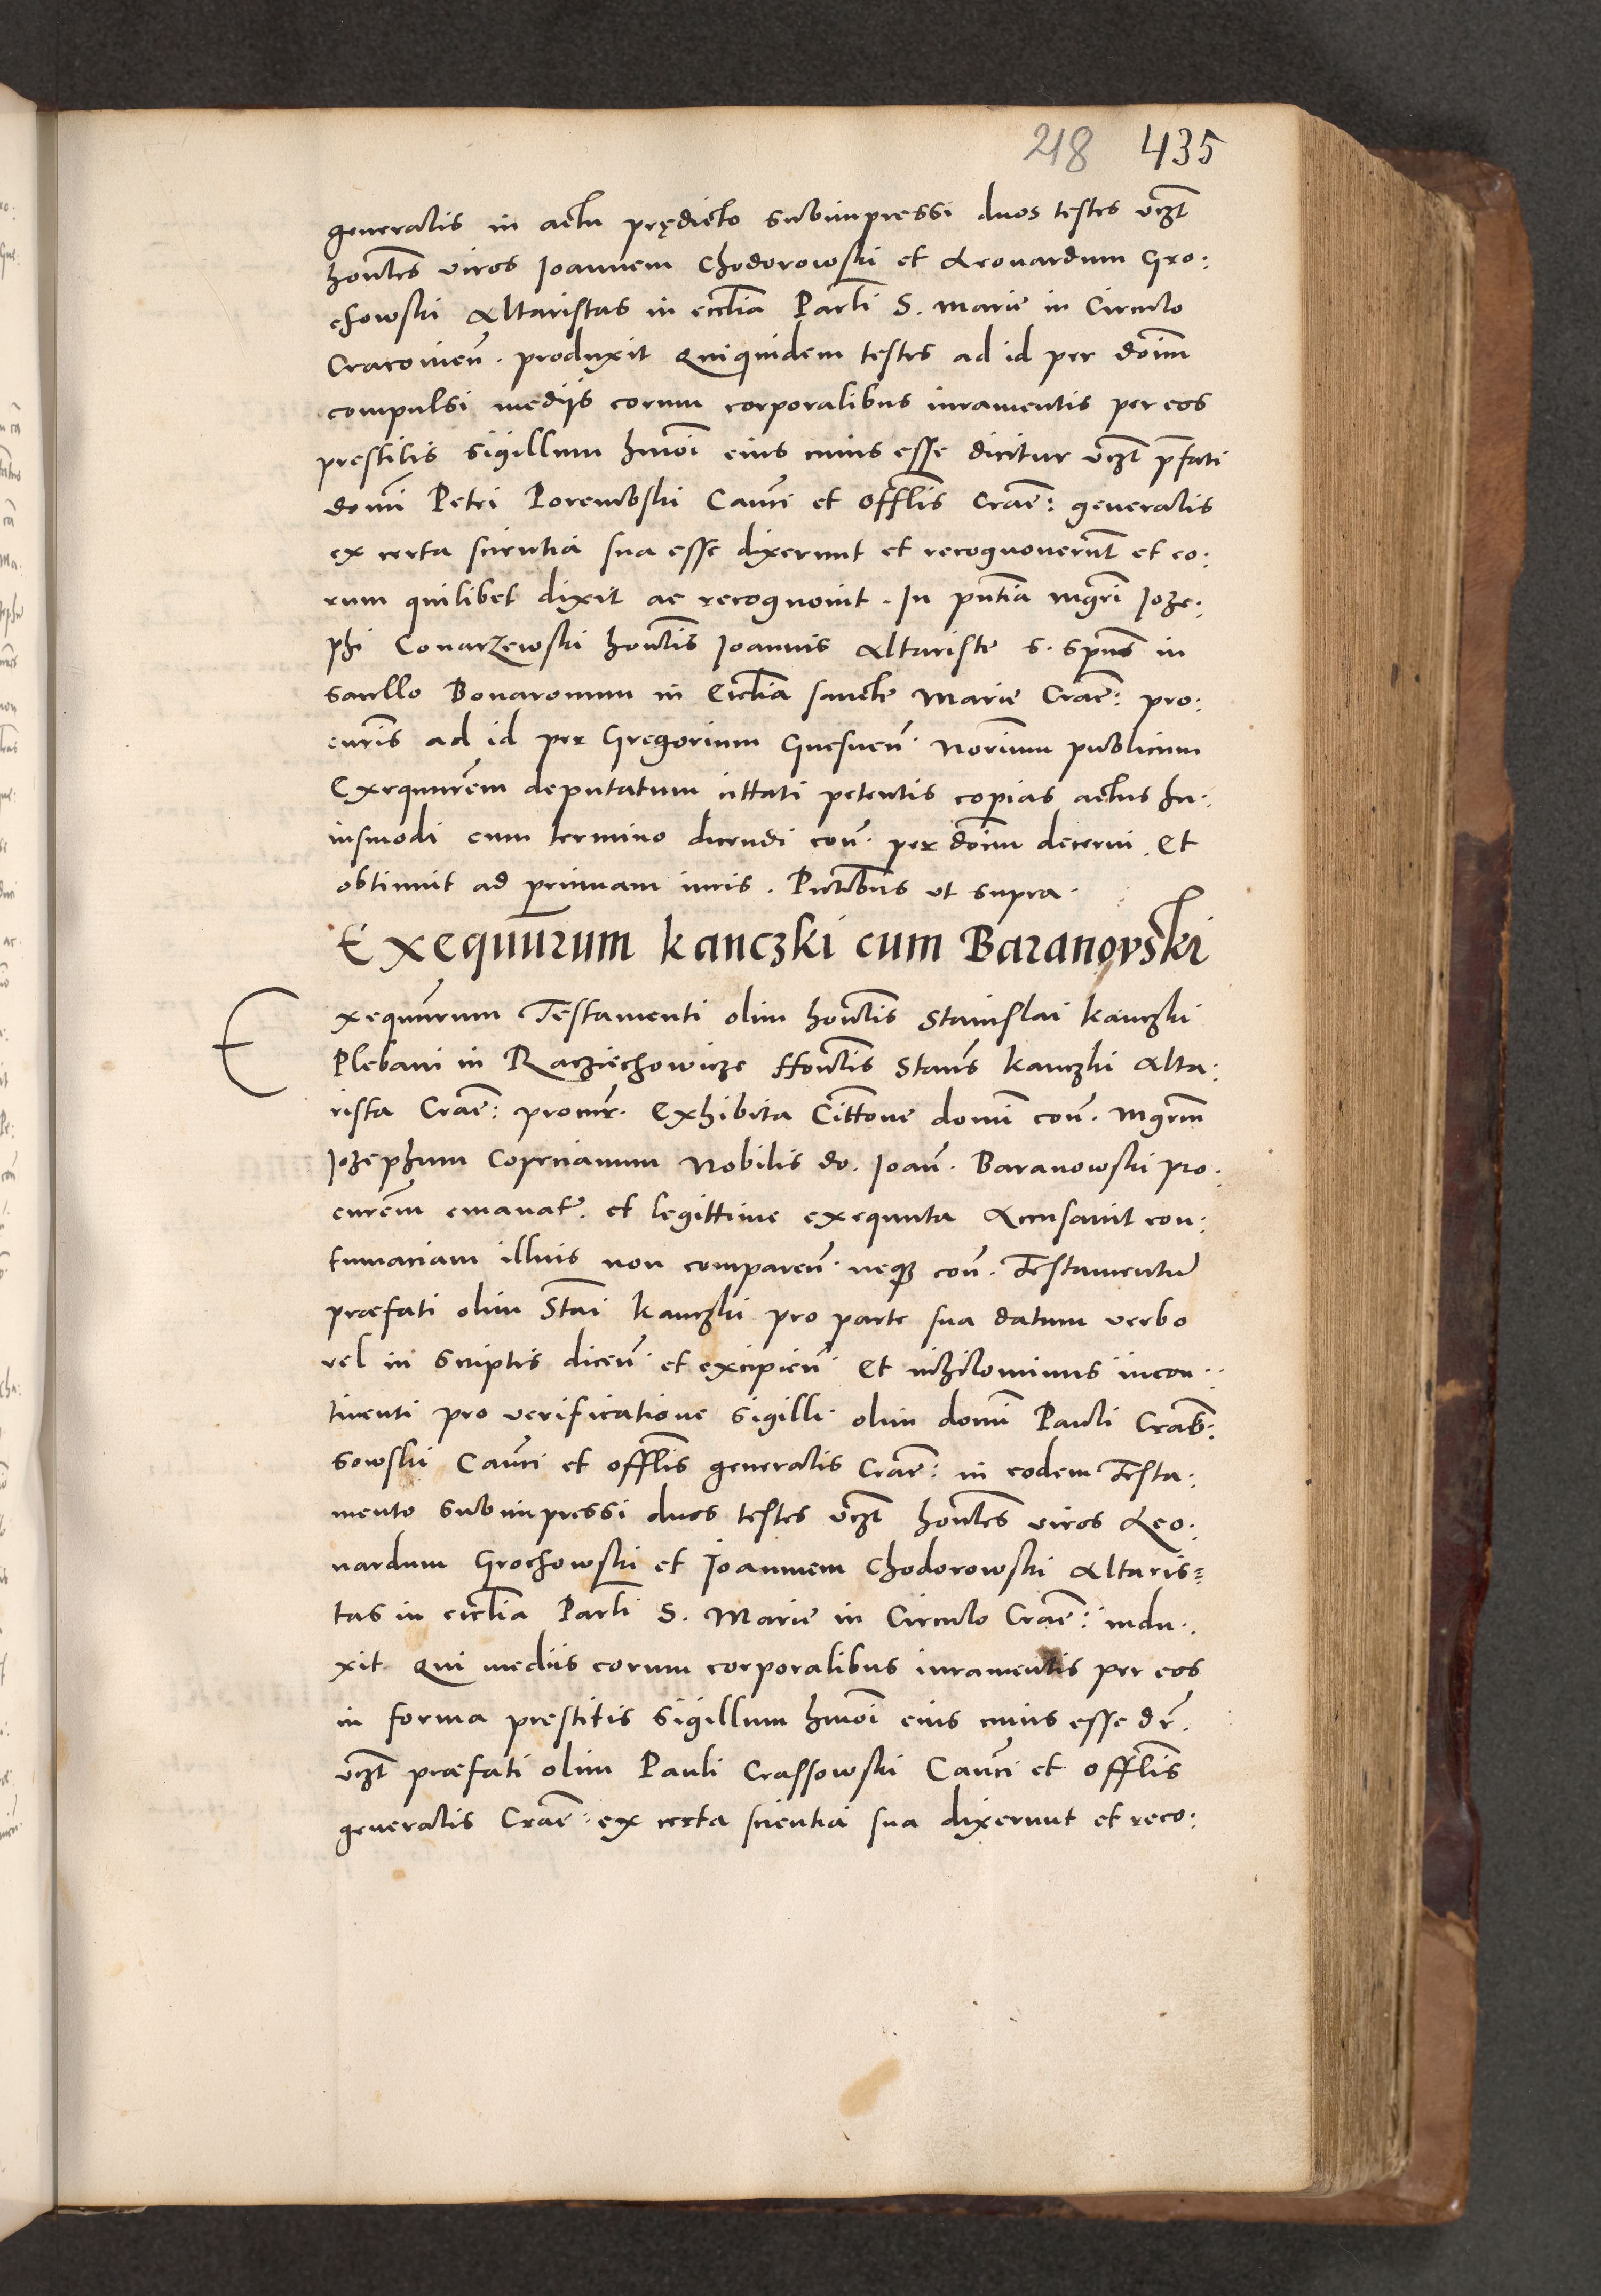 218 435
generalis in actu prędicto subimpressi duos testes vczt
honles viros Ioannem Chodorowski et Leonardum Gro:
chowski Altaristas in ecclia Parli S. Marie in Circulo
Cracovien. produxit Quiquidem testes ad id per donm
compulsi medijs eorum corporalibus iuramentis per eos
prestitis sigillum hmoi eius cuius esse dicitur vczt pfati
domi Petri Porembski Canci et Offlis Crace: generalis
ex certa scientia sua esse dixerunt et recognoverut et eo:
rum quilibet dixit ac recognovit. In pntia Mgri Joze:
phi Conarzewski honlis Joannis Altariste S. Spus in
sacello Bonaronum in Ecclia sancte Marie Crace: pro:
curis ad id per Gregorium Gnesnen. Norium publicum
Exequurem deputatum cittati petentis copias actus hu:
iusmodi cum termino dicendi con. per donm decerni. Et
obtinuit ad primam iuris. Pntibus ut supra.
Exequurum Kanczki cum Baranovski
Exequurum Testamenti olim honlis Stanislai Kanczki
Plebani in Racziechowicze Honlis Stanis Kanczki Alta:
rista Crace: procur. Exhibita Cittone domi con. Mgrm
Jozephum Coperniamum Nobilis do. Joan. Baranowski pro:
curem emanat. et legittime exequuta Accusavit con:
tumaciam illius non comparen. neque con. Testamentu
præfati olim Stai Kanczki pro parte sua datum verbo
vel in scriptis dicen. et excipien. Et nihilominus incon:
tinenti pro verificatione sigilli olim domi Pauli Cras:
sowski Canci et offlis generalis Crace: in eodem Testa:
mento subimpressi duos testes vczt honles viros Leo:
nardum Grochowski et Joannem Chodorowski Altaris=
tas in ecclia Parli S. Marie in Circulo Crace: indu:
xit Qui mediis eorum corporalibus iuramentis per eos
in forma prestitis sigillum hmoi eius cuius esse dr.
vczt præfati olim Pauli Crassowski Canci et Offlis
generalis Crace: ex certa scientia sua dixerunt et reco: